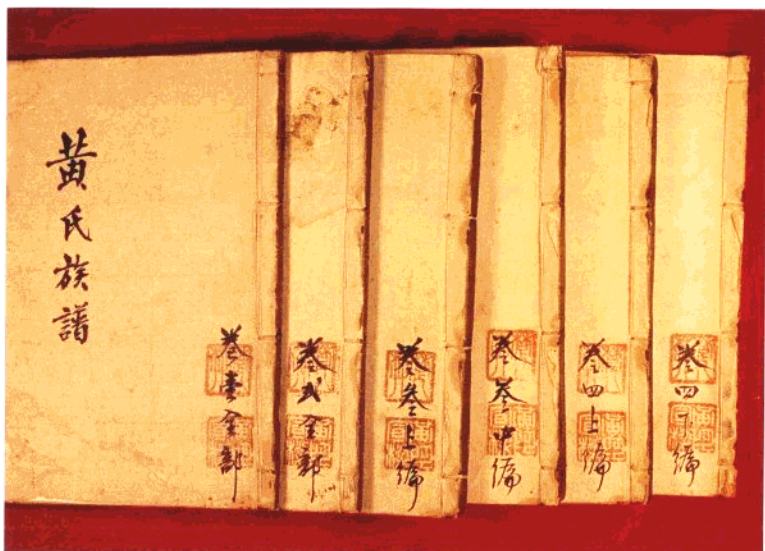 黃氏族譜
卷壹全部
卷弍全部
卷叁上編
卷叁中編
卷四上編
卷四下編